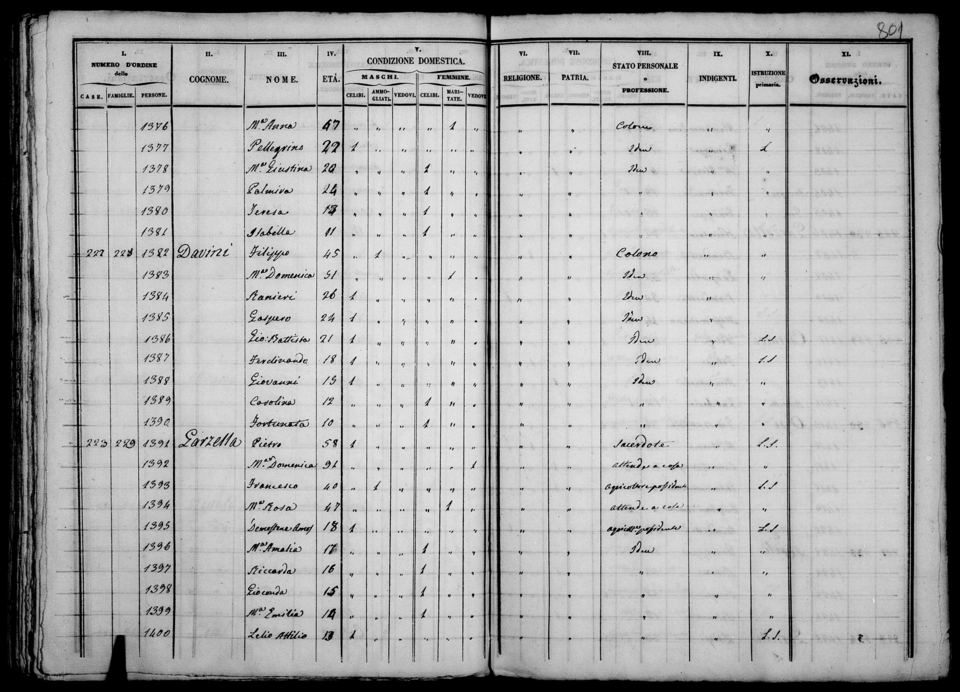 801
I. II. III. IV. V. VI. VII. VIII. IX. X. XI.
NUMERO D'ORDINE delle COGNOME. NOME. ETÀ. CONDIZIONE DOMESTICA. RELIGIONE. PATRIA. STATO PERSONALE e PROFESSIONE. INDIGENTI. ISTRUZIONE primaria. Osservazioni.
MASCHI. FEMMINE.
CASE. FAMIGLIE. PERSONE. CELIBI. AMMOGLIATI. VEDOVI. CELIBI. MARITATE. VEDOVE.
1376 Ma Anna 47 „ „ „ „ 1 „ „ „ Colono „ „
1377 Pellegrino 22 1 „ „ „ „ „ „ „ Idem „
1378 Ma Giustina 20 „ „ „ 1 „ „ „ „ Idem „ „
1379 Palmira „ „ „ 1 „ „ „ „ „ „ „
1380 Teresa „ „ „ 1 „ „ „ „ „ „ „
1381 Isabella 11 „ „ „ 1 „ „ „ „ „ „ „
1382 Davini Filippo 45 „ 1 „ „ „ „ „ „ Colono „ „
1383 Ma Domenica 51 „ „ „ „ 1 „ „ „ Idem „ „
1384 Ranieri 26 1 „ „ „ „ „ „ „ Idem „ „
1385 Gaspero 24 1 „ „ „ „ „ „ „ Idem „ „
1386 Gio: Battista 21 1 „ „ „ „ „ „ „ Idem „ L.S
1387 Ferdinando 18 1 „ „ „ „ „ „ „ Idem „ L.S
1388 Giovanni 15 1 „ „ „ „ „ „ „ Idem „ „
1389 Carolina 12 „ „ „ 1 „ „ „ „ „ „ „
1390 Fortunata 10 „ „ „ 1 „ „ „ „ „ „ „
223 229 1391 Garzella Pietro 58 1 „ „ „ „ „ „ „ Sacerdote „ L.S.
1392 Ma Domenica 91 „ „ „ „ „ 1 „ „ attende a casa „ „
1393 Francesco 40 „ 1 „ „ „ „ „ „ agricoltore possidente „ L.S
1394 Ma Rosa 47 „ „ „ „ 1 „ „ „ attende a casa „ „
1395 18 1 „ „ „ „ „ „ „ possidente „ L.S
1396 Ma Amalia 17 „ „ „ 1 „ „ „ „ Idem „ „
1397 Riccarda 16 „ „ „ 1 „ „ „ „ „ „ „
1398 Gioconda 15 „ „ „ 1 „ „ „ „ „ „ „
1399 Ma Emilia 14 „ „ „ 1 „ „ „ „ „ „ „
1400 Lelio Attilio 1 „ „ „ „ „ „ „ „ „ L.S.